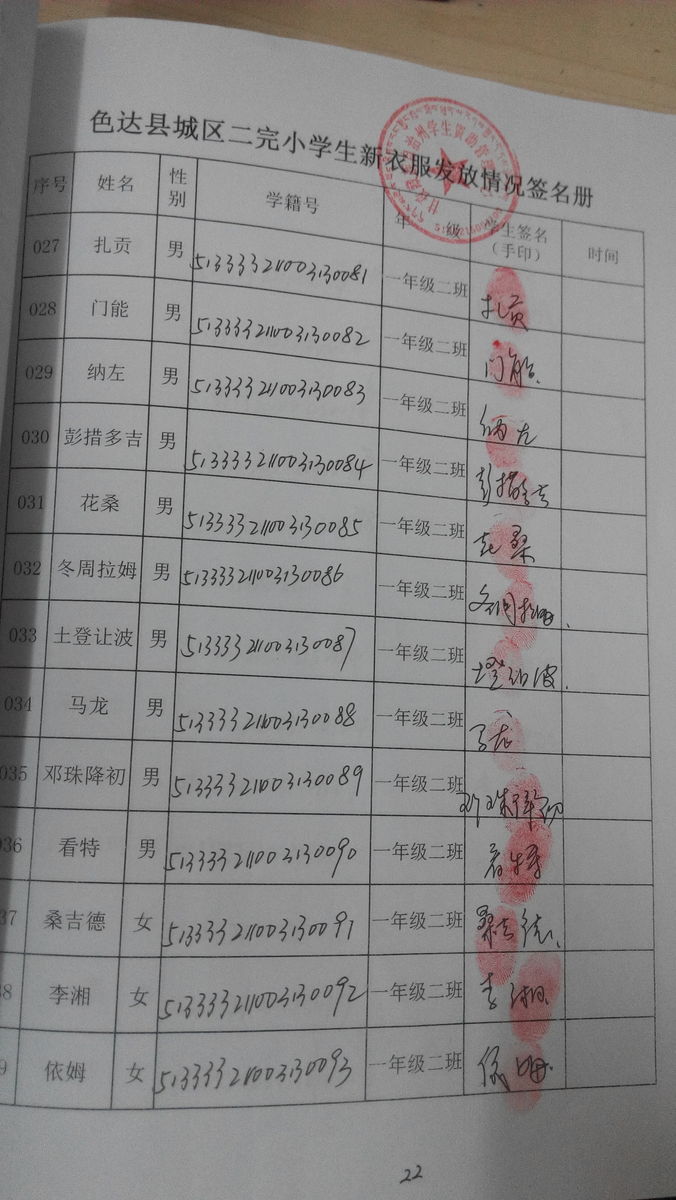 色达县城区二完小学生新衣服发放情况签名册
序号 姓名 性别 学籍号 年 级 学生签名（手印） 时间
027 扎贡 男 513333211003130081 一年级二班 扎贡
028 门能 男 513333211003130082 一年级二班 门能
029 纳左 男 513333211003130083 一年级二班 纳左
030 彭措多吉 男 513333211003130084 一年级二班 彭措多吉
031 花桑 男 513333211003130085 一年级二班 花桑
032 冬周拉姆 男 513333211003130086 一年级二班 冬周拉姆
033 土登让波 男 513333211003130087 一年级二班 土登让波
034 马龙 男 513333211003130088 一年级二班 马龙
035 邓珠降初 男 513333211003130089 一年级二班 邓珠降初
36 看特 男 513333211003130090 一年级二班 看特
37 桑吉德 女 513333211003130091 一年级二班 桑吉德
8 李湘 女 513333211003130092 一年级二班 李湘
9 依姆 女 513333211003130093 一年级二班 依姆
22